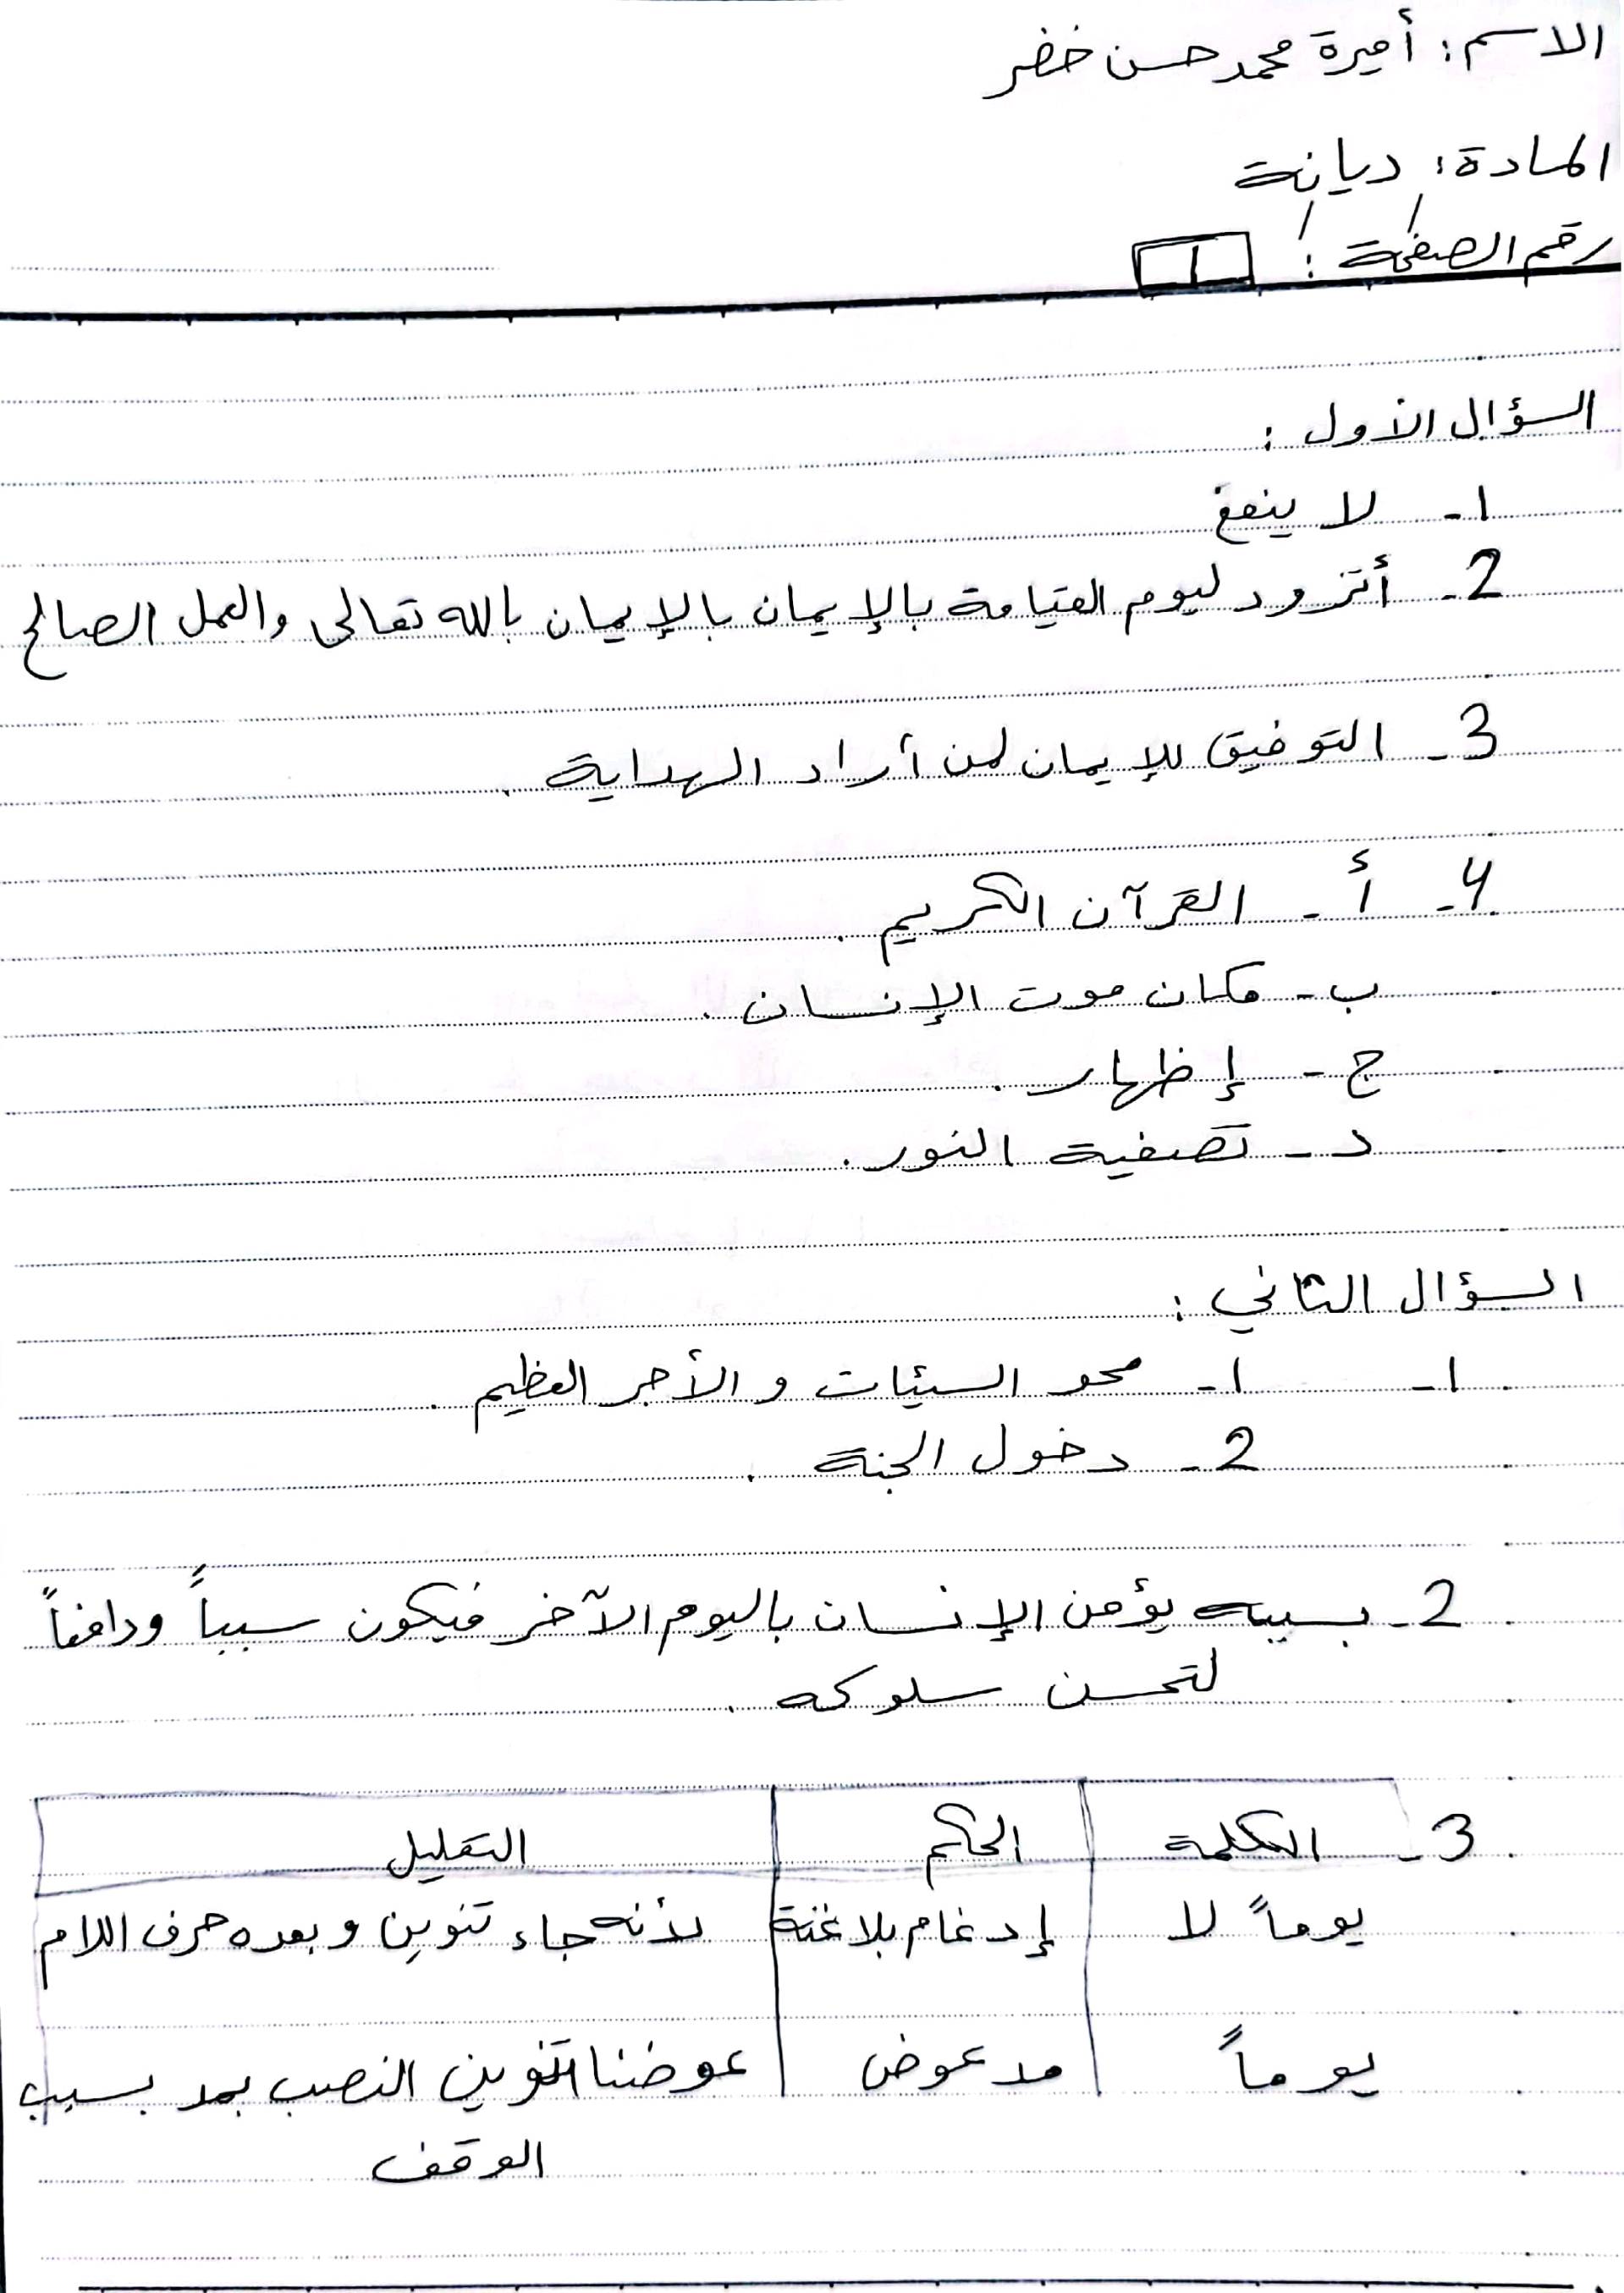 الاسم: أميرة محمد حسن خضر
المادة: ديانة
رقم الصفحة: 1
السؤال الأول:
1- لا ينفع
2- أتزود ليوم القيامة بالإيمان بالإيمان بالله تعالى والعمل الصالح
3- التوفيق للإيمان لمن أراد الهداية.
4- أ- القرآن الكريم.
ب- مكان موت الإنسان.
ج- إظهار.
د- تصفية النور.
السؤال الثاني:
1- 1- محو السيئات و الأجر العظيم.
2- دخول الجنة.
2- بسببه يؤمن الإنسان باليوم الآخر فيكون سبباً ودافعاً
لتحسن سلوكه.
3- الكلمة الحكم التعليل
يوماً لا إدغام بلا غنة لأنه جاء تنوين و بعده حرف اللام
يوماً مد عوض عوضنا التنوين النصب بمد بسبب
الوقف